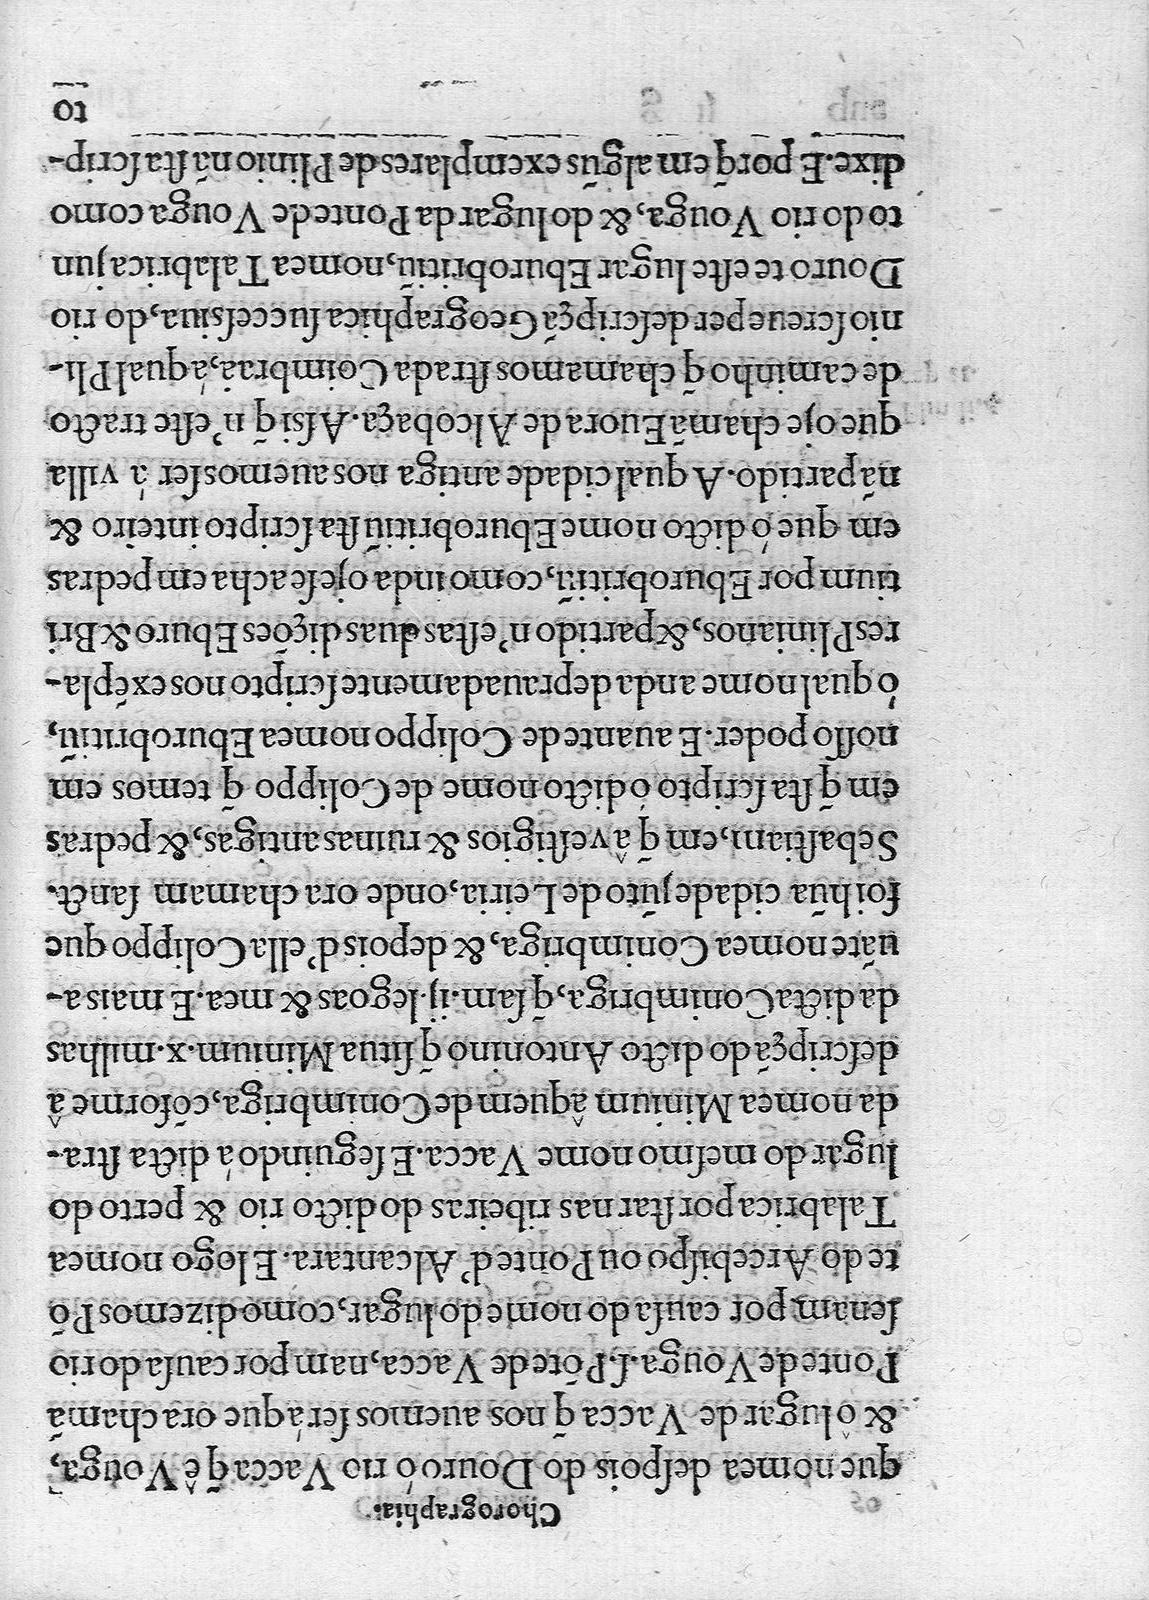 Chorographia.
que nomea despois do Douro ó rio Vacca q̃ ê Vouga,
& ô lugar de Vacca q̃ nos auemos ser á que ora chamã
Ponte de Vouga.s.Põte de Vacca, nam por causa do rio
senam por causa do nome do lugar, como dizemos Põ
te do Arcebispo ou Ponte d'Alcantara. E logo nomea
Talabrica por star nas ribeiras do dicto rio & perto do
lugar do mesmo nome Vacca. E seguindo á dicta stra-
da nomea Minium âquem de Conimbriga, cõforme â
descripçã do dicto Antonino q̃ situa Minium.x.milhas
da dicta Conimbriga, q̃ sam.ij.legoas & mea. E mais a-
uãte nomea Conimbriga, & depois d'ella Colippo que
foi hũa cidade jũto de Leiria, onde ora chamam sanct.
Sebastiam, em q̃ â vestigios & ruinas antigas, & pedras
em q̃ sta scripto ó dicto nome de Colippo q̃ temos em
nosso poder. E auante de Colippo nomea Eburobritiũ,
ó qual nome anda deprauadamente scripto nos exẽpla-
res Plinianos, & partido n'estas duas dições Eburo & Bri
tium por Eburobritiũ, como inda oje se acha em pedras
em que ó dicto nome Eburobritiũ sta scripto inteiro &
nã partido. A qual cidade antiga nos auemos ser á villa
que oje chamã Euora de Alcobaça. Assi q̃ n'este tracto
de caminho q̃ chamamos strada Coimbraã, á qual Pli-
nio screue per descripçã Geographica successiua, do rio
Douro te este lugar Eburobritiũ, nomea Talabrica jun
to do rio Vouga, & do lugar da Ponte de Vouga como
dixe. E porq̃ em algũs exemplares de Plinio nã sta scrip-
to